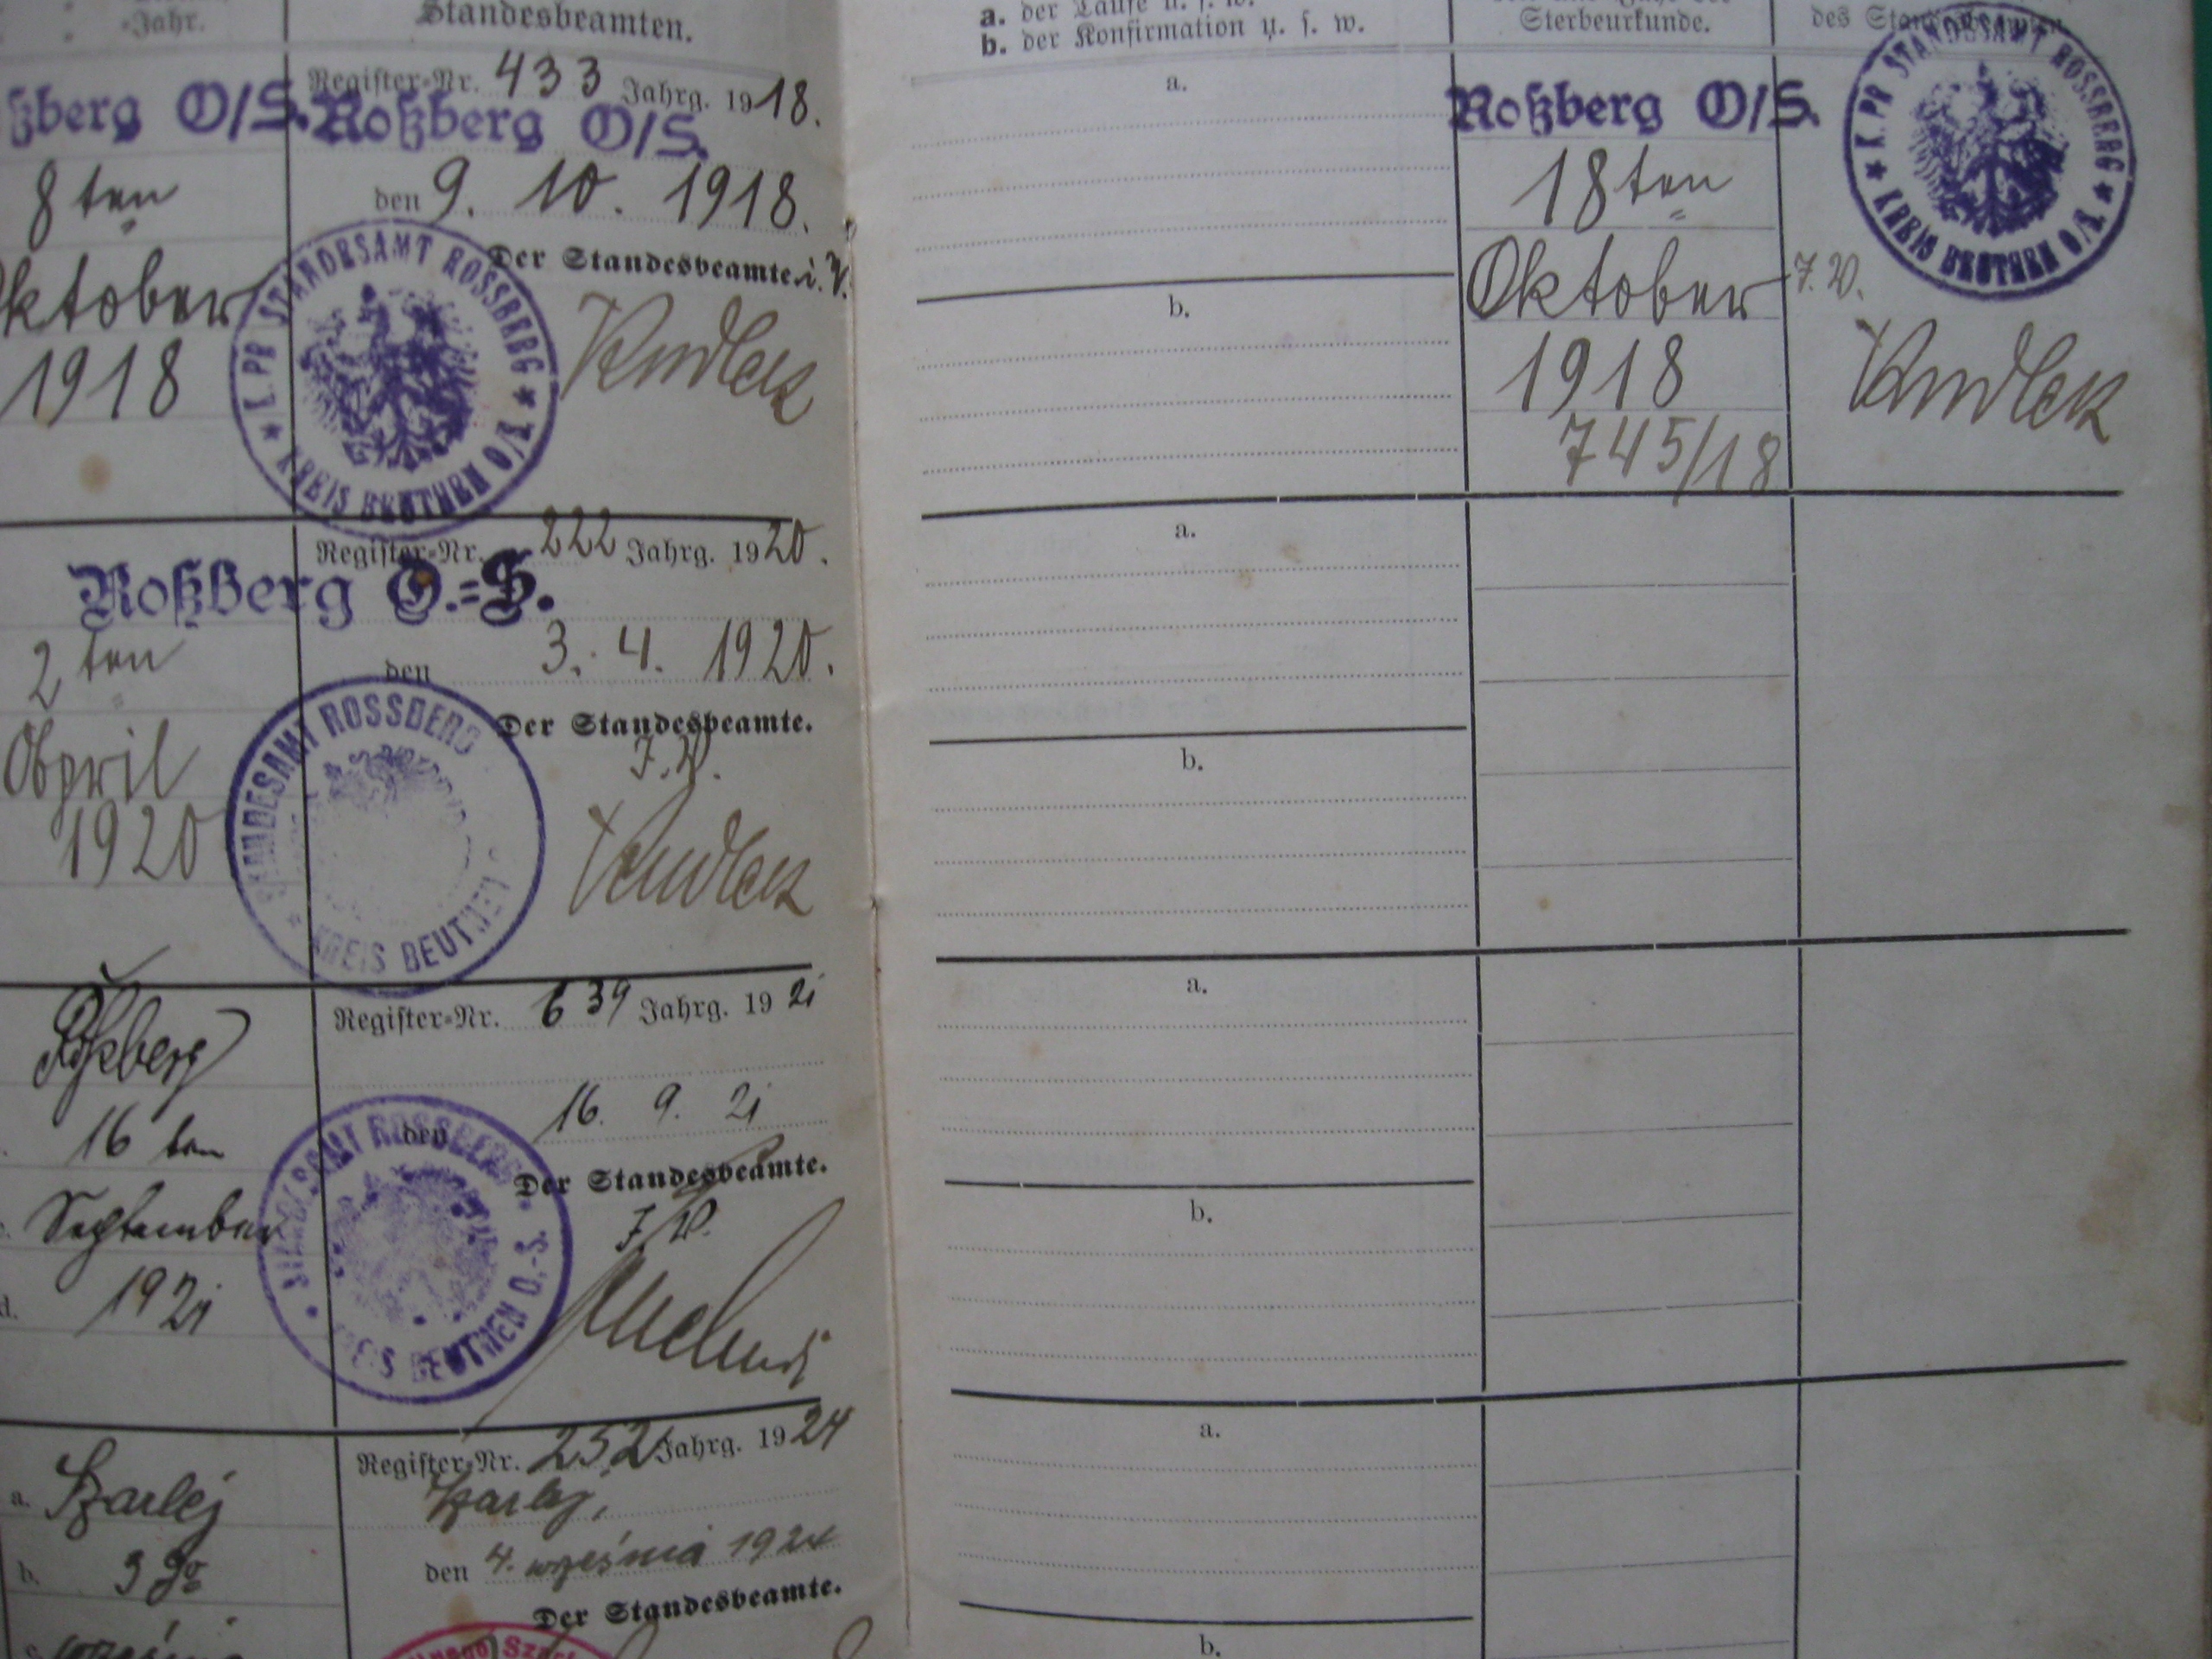 Jahr.
Standesbeamten.
ßberg O/S.
8ten
Oktober
1918
Register-Nr. 433 Jahrg. 1918.
Roßberg O/S.
den 9. 10. 1918.
Der Standesbeamte i. V.
K. PR STANDESAMT ROSSBERG
★ KREIS BEUTHEN O/S. ★
Roßberg O.=S.
2ten
April
1920
Register-Nr. 222 Jahrg. 1920.
den 3. 4. 1920.
Der Standesbeamte.
J. V.
STANDESAMT ROSSBERG
KREIS BEUTHEN
Roßberg
16 ten
September
d. 1921
Register-Nr. 639 Jahrg. 1921
den 16. 9. 21
Der Standesbeamte.
J. V.
STANDESAMT ROSSBERG
KREIS BEUTHEN O.-S.
a. Szarlej
b. 3go
c. września
Register-Nr. 252 Jahrg. 1924
Szarlej,
den 4. września 1924
Der Standesbeamte.
a. der Taufe u. s. w.
b. der Konfirmation u. s. w.
Sterbeurkunde.
des Standesbeamten
a.
b.
Roßberg O/S.
18ten
Oktober
1918
745/18
K. PR STANDESAMT ROSSBERG
★ KREIS BEUTHEN O/S. ★
J. V.
a.
b.
a.
b.
a.
b.